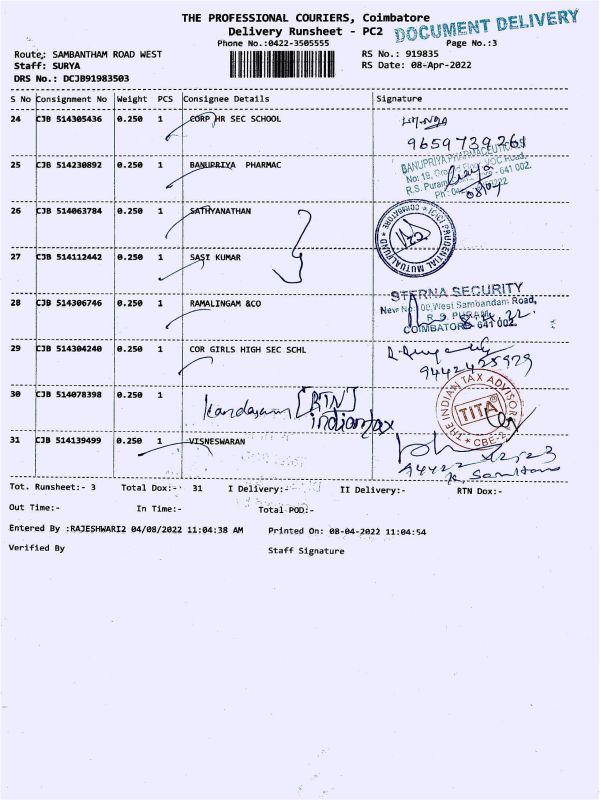 THE PROFESSIONAL COURIERS, Coimbatore
Delivery Runsheet - PC2
DOCUMENT DELIVERY
Phone No.:0422-3505555
Page No.:3
Route: SAMBANTHAM ROAD WEST
RS No.: 919835
Staff: SURYA
RS Date: 08-Apr-2022
DRS No.: DCJB91983503
S No Consignment No Weight PCS Consignee Details Signature
24 CJB 514305436 0.250 1 CORP HR SEC SCHOOL
9659739261
25 CJB 514230892 0.250 1 BANUPRIYA PHARMAC
BANUPRIYA PHARMACEUTICALS
No: 19, Ground Floor, VOC Road,
R.S. Puram - 641 002.
08/04
26 CJB 514063784 0.250 1 SATHYANATHAN
ICICI PRUDENTIAL MUTUAL FUND * COIMBATORE *
27 CJB 514112442 0.250 1 SASI KUMAR
28 CJB 514306746 0.250 1 RAMALINGAM &CO
STERNA SECURITY
West Sambandam Road,
R.S. PURAM
COIMBATORE 641 002.
29 CJB 514304240 0.250 1 COR GIRLS HIGH SEC SCHL
9442425929
30 CJB 514078398 0.250 1
Kandasam [RTN]
indiantax
THE INDIAN TAX ADVISOR
TITA
* CBE-2 *
31 CJB 514139499 0.250 1 VISNESWARAN
94422 42223
Tot. Runsheet:- 3 Total Dox:- 31 I Delivery:- II Delivery:- RTN Dox:-
Out Time:- In Time:- Total POD:-
Entered By :RAJESHWARI2 04/08/2022 11:04:38 AM Printed On: 08-04-2022 11:04:54
Verified By Staff Signature